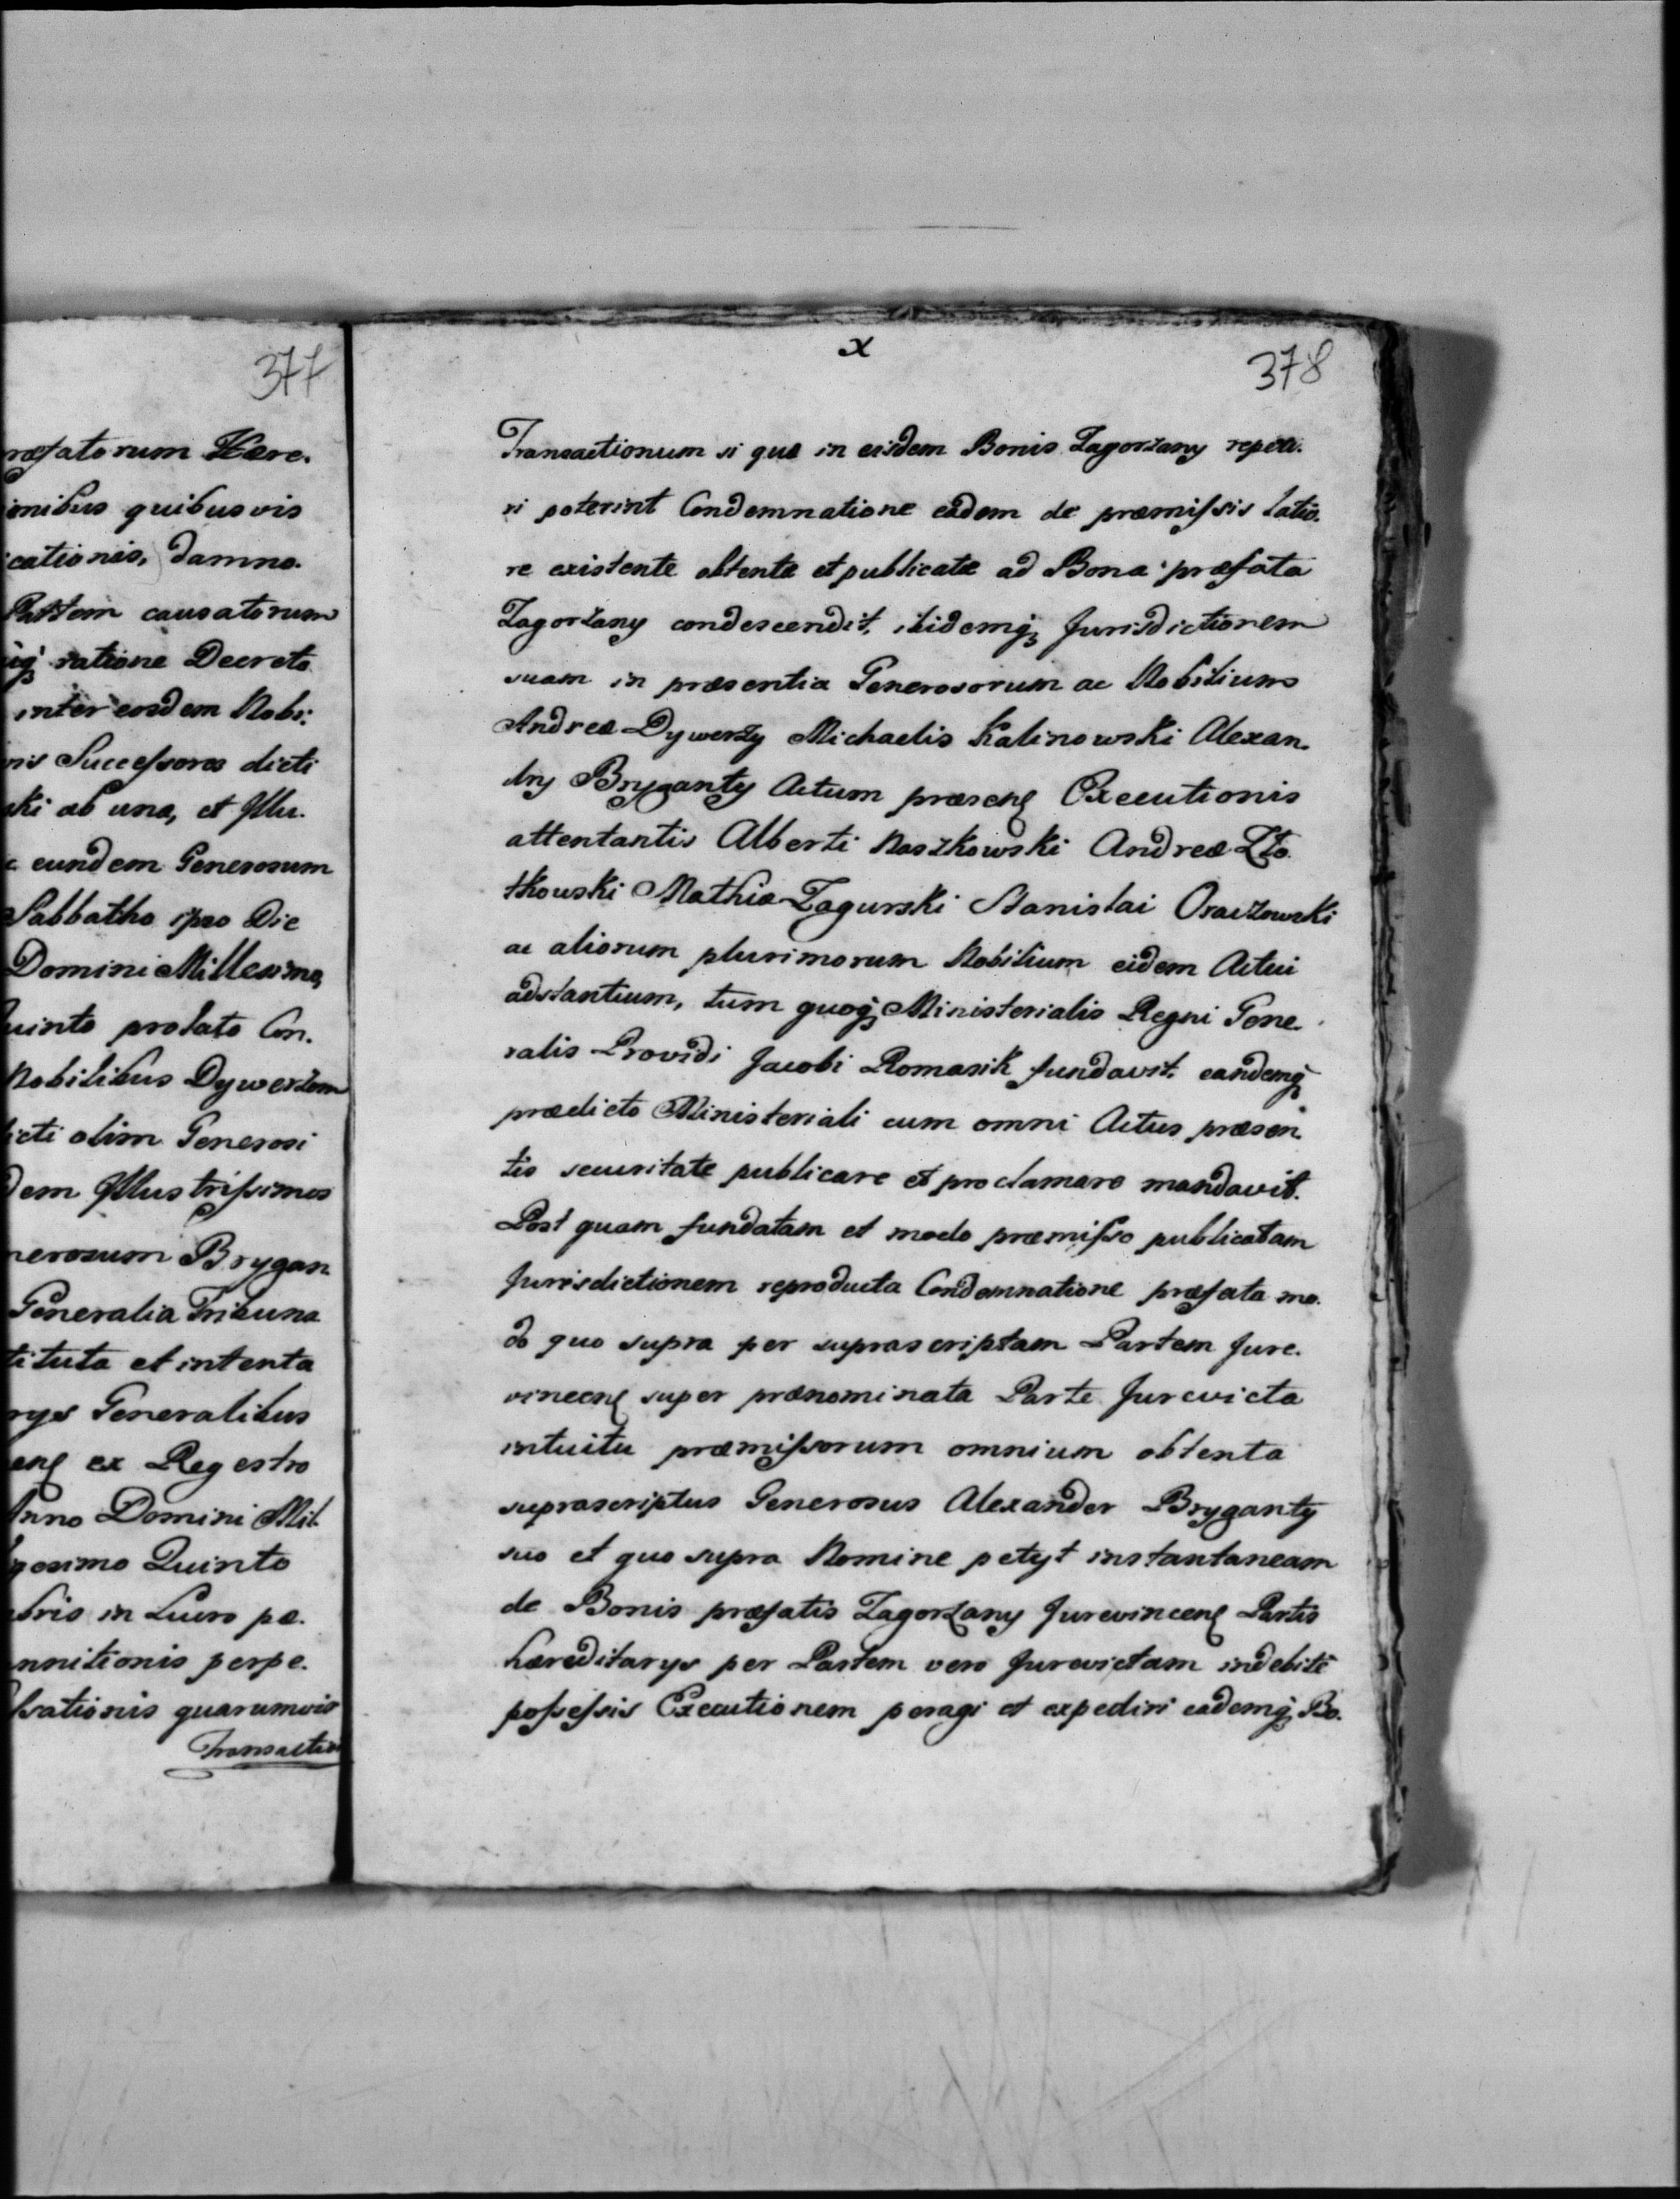 377
ræfatorum Hære.
ionibus quibusvis
cationis, damno.
Partem causatorum
iq́ꝫ ratione Decreto
inter eosdem Nobi.
nis Successores dicti
ski ab una, et Illu.
c eundem Generosum
Sabbatho ipso Die
Domini Millesimo,
Quinto prolato Con.
Nobilibus Dywerżom
dicti olim Generosi
dem Illustrissimos
nerosum Brygan
Generalia Tribuna
tituta et intenta
rys Generalibus
ex Regestro
Anno Domini Mil.
gesimo Quinto
bris in Lucro pæ.
nnitionis perpe.
sationis quarumvis
Transactio
x
378
Transactionum si quæ in eisdem Bonis Zagorżany reperi.
ri poterint Condemnatione eâdem de præmissis latio.
re existente obtentæ et publicatæ ad Bona præfata
Zagorżany condescendit, ibidemqꝫ Jurisdictionem
suam in præsentia Generosorum ac Nobilium
Andreæ Dywerży Michaelis Kalinowski Alexan.
dry Bryganty Actum præsenꝭ Executionis
attentantis Alberti Roszkowski Andreæ Zło.
tkowski Mathiæ Zagurski Stanislai Oraczowski
ac aliorum plurimorum Nobilium eidem Actui
adstantium, tum quoqꝫ Ministerialis Regni Gene.
ralis Providi Jacobi Romasik fundavit, eandemqꝫ
prædicto Ministeriali cum omni Actus præsen.
tis securitate publicare et proclamare mandavit.
Post quam fundatam et modo præmisso publicatam
Jurisdictionem reproducta Condemnatione præfata mo.
do quo supra per suprascriptam Partem Jure.
vincenꝭ super prænominata Parte Jurevicta
intuitu præmissorum omnium obtenta
suprascriptus Generosus Alexander Bryganty
suo et quo supra Nomine petyt instantaneam
de Bonis præfatis Zagorżany Jurevincenꝭ Partis
hæreditarys per Partem vero Jurevictam indebitè
possessis Executionem peragi et expediri eademqꝫ Bo.